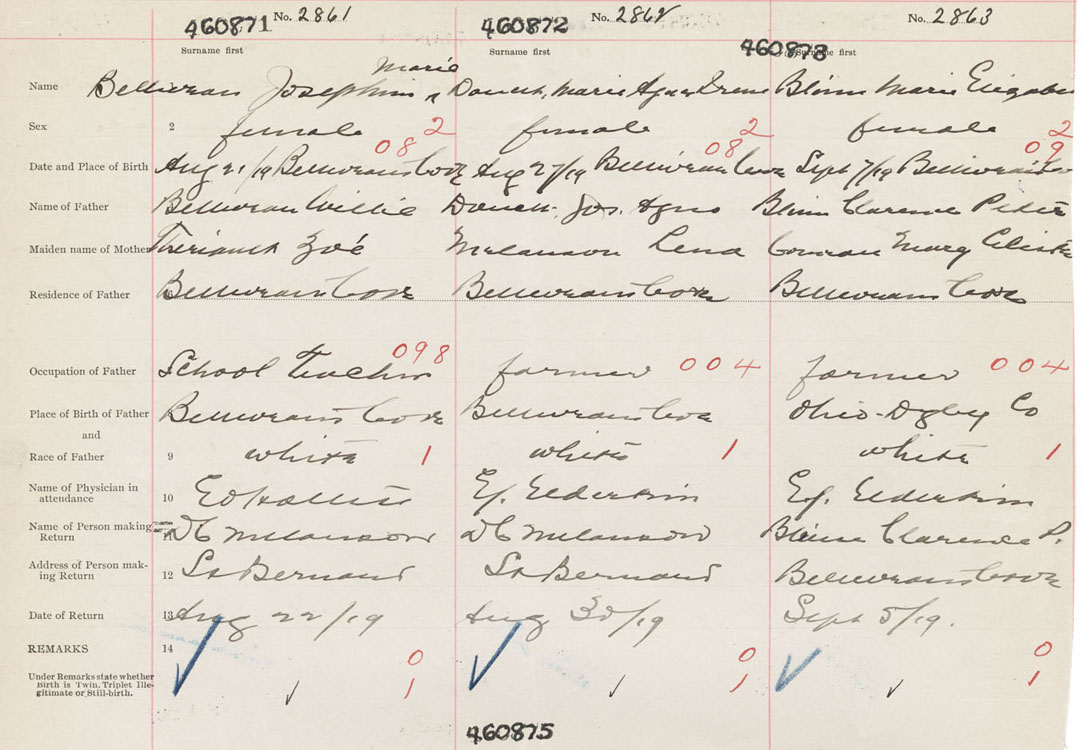 460871 No. 2861 460872 No. 2862 No. 2863
Surname first Surname first 460873 Surname first
Marie
Name 1 Belliveau Josephine Doucet, Marie Agnes Irene Marie
Sex 2 female 2 female 2 female 2
08 08 09
Date and Place of Birth Aug 21/19 Belliveaus Cove Aug 27/19 Belliveau Cove Sept 7/19 Belliveaus
Name of Father Belliveau Willie Doucet Jos. Clarence Peter
Maiden name of Mother Theriault Zoé Melanson Lena Mary
Residence of Father Belliveaus Cove Belliveaus Cove Belliveaus Cove
098
Occupation of Father School Teacher farmer 004 farmer 004
Place of Birth of Father Belliveaus Cove Belliveaus Cove Ohio-Digby Co
and
Race of Father 9 white 1 white 1 white 1
Name of Physician in
attendance 10 E.f. Elderkin E.f. Elderkin
Name of Person making
Return DC Melanson DC Melanson Clarence P.
Address of Person mak-
ing Return 12 St Bernard St Bernard Belliveaus Cove
Date of Return 13 Aug 22/19 Aug 30/19 Sept 5/19.
REMARKS 14
0 0 0
Under Remarks state whether
Birth is Twin, Triplet Ille-
gitimate or Still-birth. 1 1 1
460875